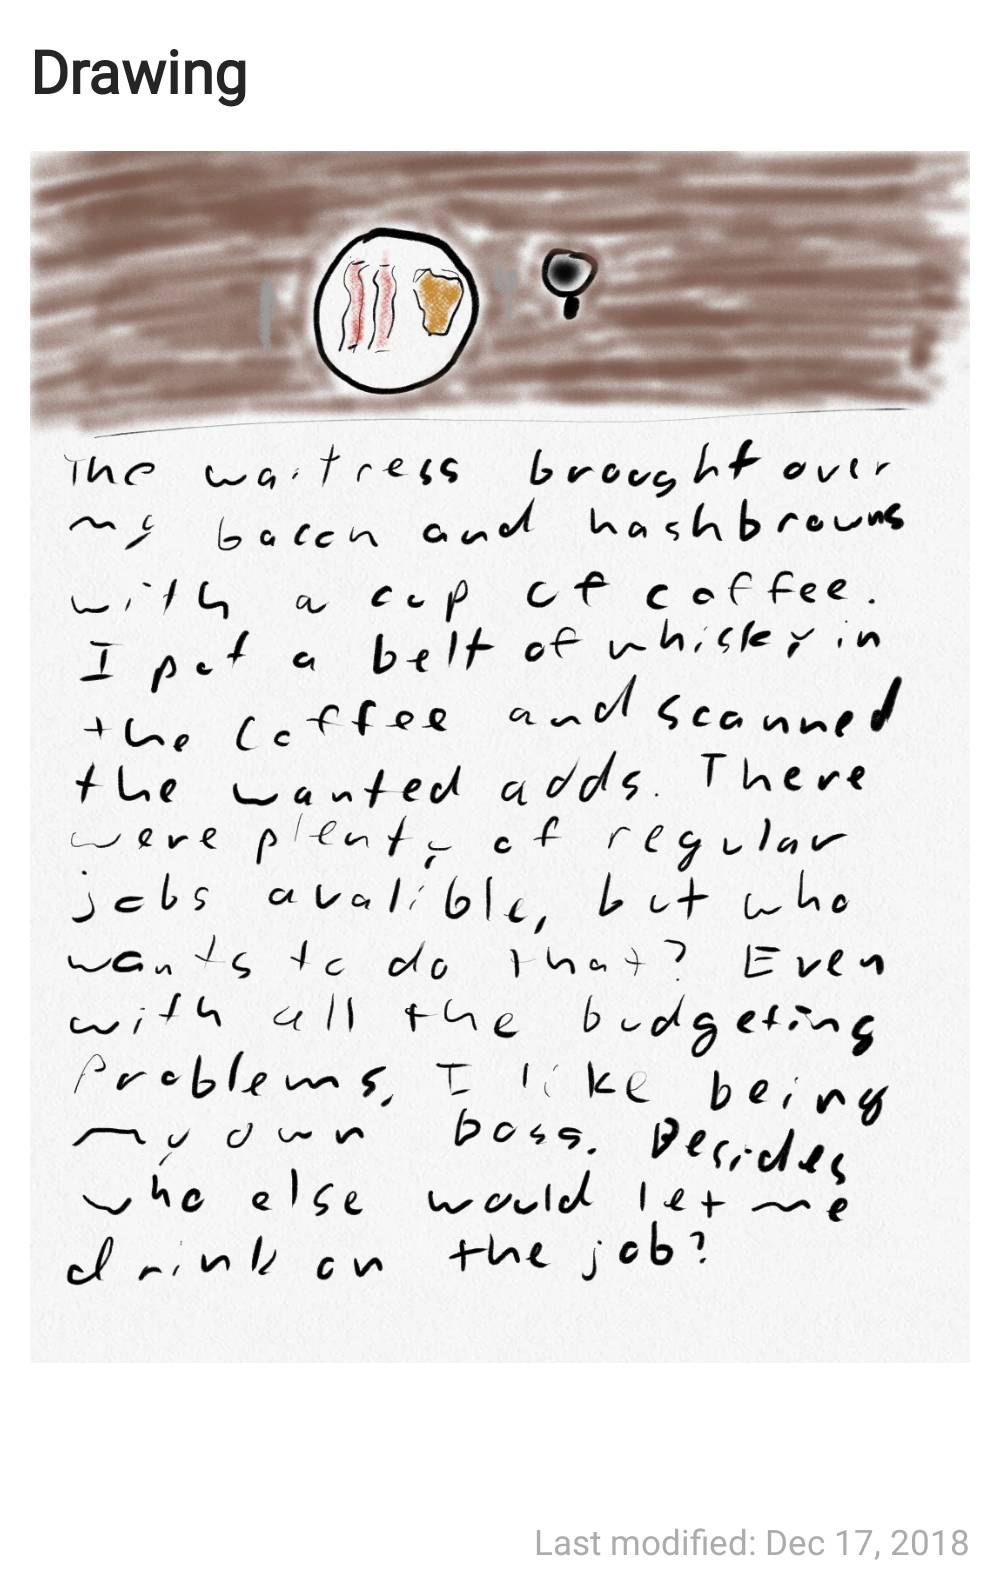 Drawing
The waitress brought over
my bacon and hashbrowns
with a cup of coffee.
I put a belt of whiskey in
the coffee and scanned
the wanted adds. There
were plenty of regular
jobs avalible, but who
wants to do that? Even
with all the budgeting
Problems, I like being
my own boss. Besides
who else would let me
drink on the job?
Last modified: Dec 17, 2018